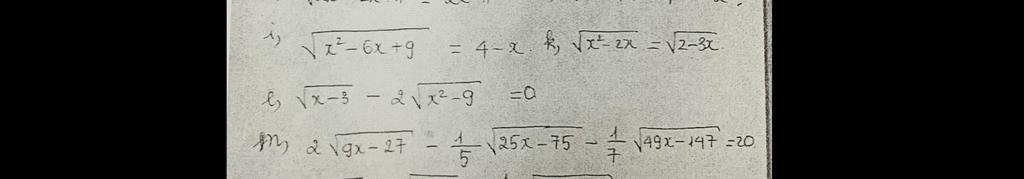 i, √(x²-6x+9) = 4-x. k, √(x²-2x) = √(2-3x).
l, √(x-3) - 2√(x²-9) = 0
m, 2√(9x-27) - 1/5 √(25x-75) - 1/7 √(49x-147) = 20